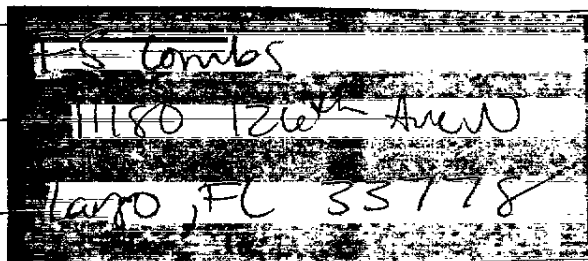 FS Combs
11180 126th Ave N
Largo, FL 33778